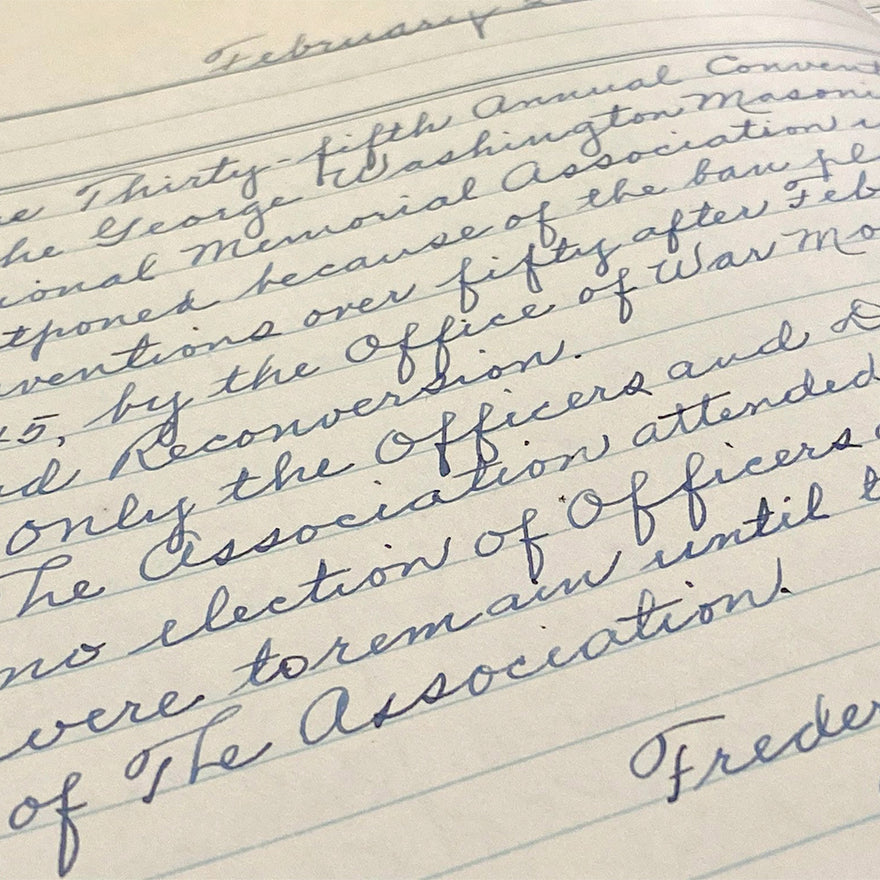 February
Thirty-fifth Annual Convent
he George Washington Masoni
ional Memorial Association
tponed because of the ban pl
ventions over fifty after Feb
45, by the Office of War Mo
d Reconversion.
only the Officers and D
The Association attended
no election of Officers
were to remain until t
of The Association.
Freder